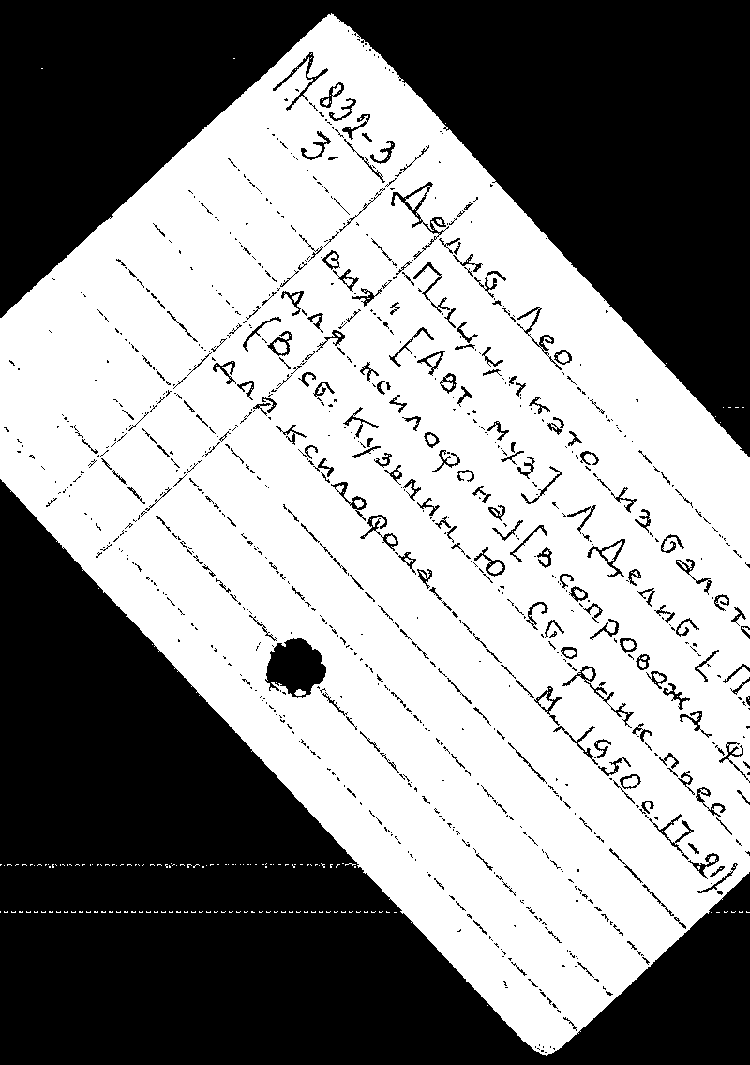 М832-3
3'
Делиб, Лео
Пиццикато из балета
вия" [Авт. муз]. Л. Делиб. [Пе
для ксилофона] [в сопровожд. ф-
(В сб: Кузьмин, Ю. Сборник пьес
для ксилофона.
М, 1950 с.17-21).